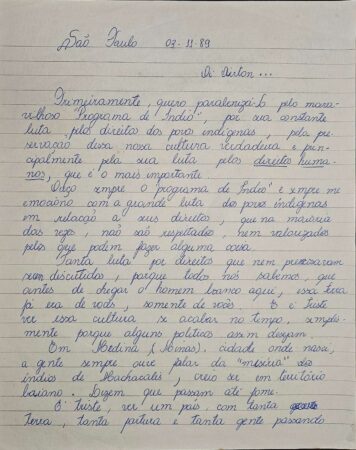 São Paulo 03-11-89
Oi Airton...
Primeiramente, quero parabenizá-lo pelo mara-
vilhoso "Programa de Índio", por sua constante
luta pelos direitos dos povos indígenas, pela pre-
servação dessa nossa cultura verdadeira e prin-
cipalmente pela sua luta pelos direitos huma-
nos, que é o mais importante.
Ouço sempre o programa de Índio" e sempre me
emociono com a grande luta dos povos indígenas
em relação a seus direitos, que na maioria
das vezes, não são respeitados, nem valorizados
pelos que podem fazer alguma coisa.
Tanta luta por direitos que nem precisavam
discutidos, porque todos nós sabemos, que
antes de chegar o homem branco aqui, essa terra
já era de vocês, somente de vocês. E é triste
ver essa cultura se acabar no tempo, simples-
mente porque alguns políticos assim desejam.
Em Medina (Minas), cidade onde nasci,
a gente sempre ouve falar da "miséria" dos
índios de Machacalés, creio ser em território
baiano. Dizem que passam até fome.
É triste, ver um país, com tanta
terra, tanta fartura e tanta gente passando